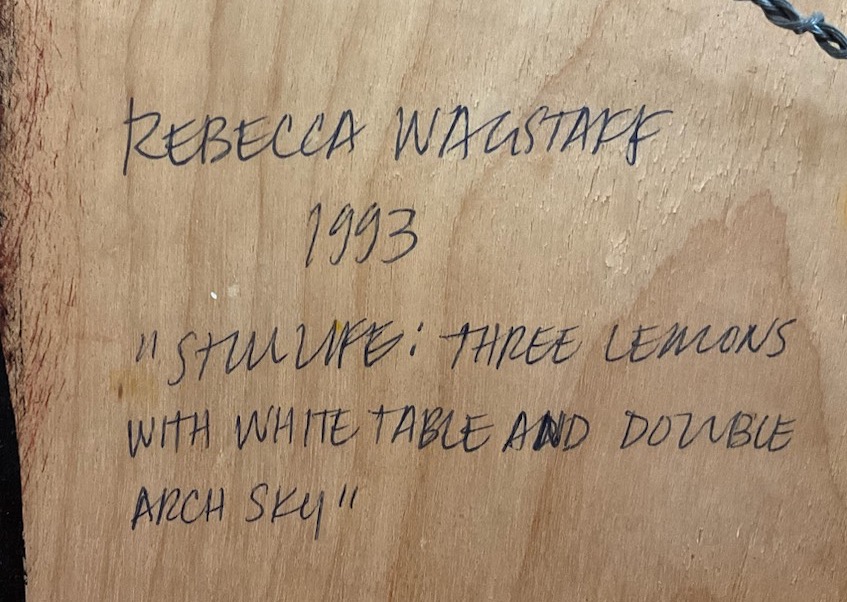 REBECCA WAGSTAFF
1993
"STILLLIFE: THREE LEMONS
WITH WHITE TABLE AND DOUBLE
ARCH SKY"